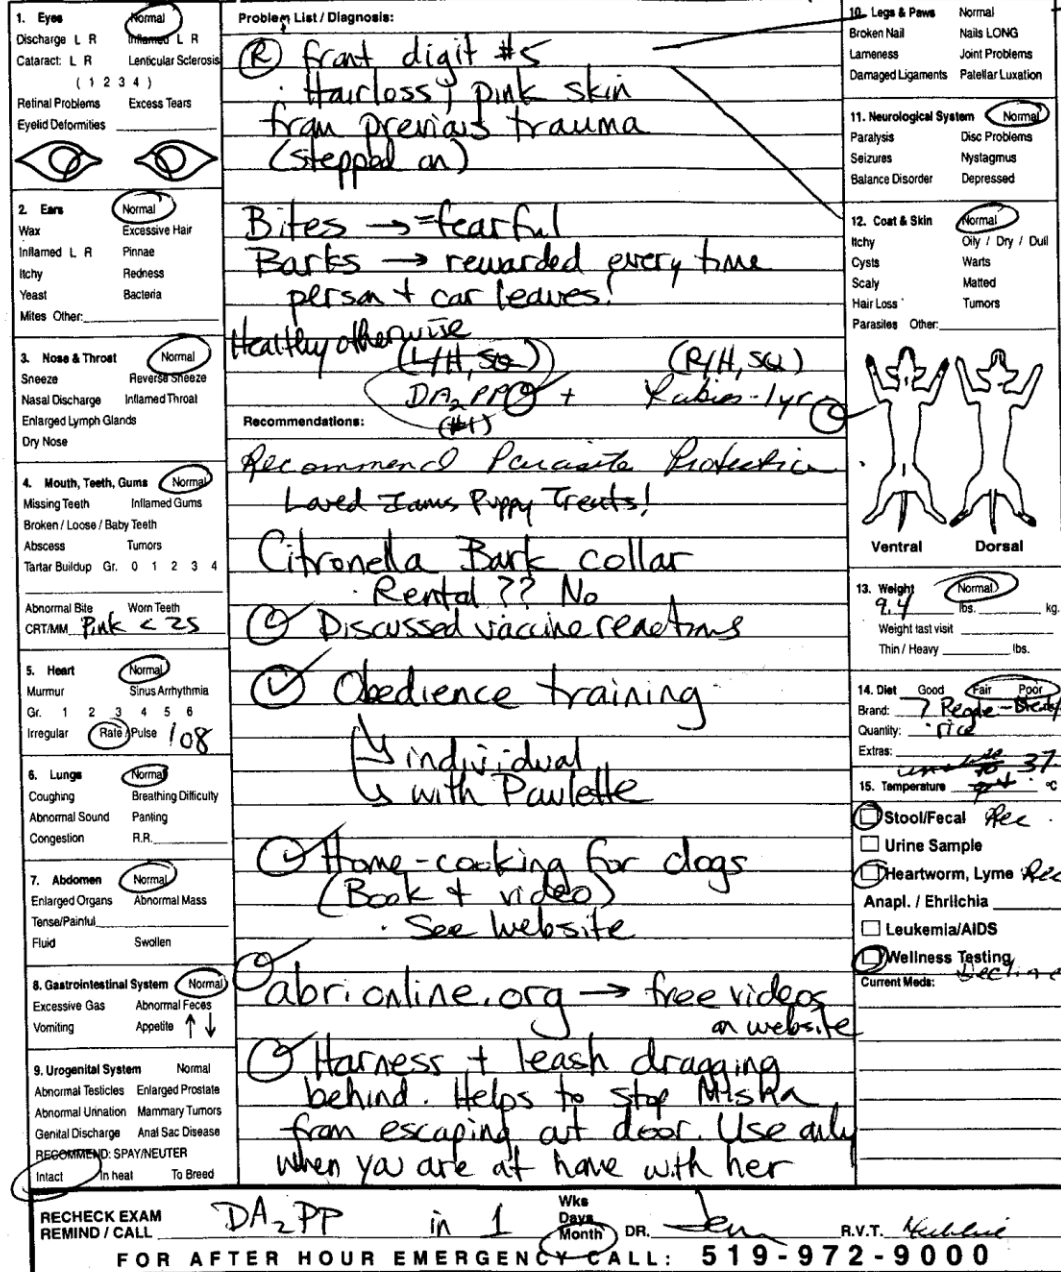 1. Eyes Normal
Discharge L R Inflamed L R
Cataract: L R Lenticular Sclerosis
( 1 2 3 4 )
Retinal Problems Excess Tears
Eyelid Deformities
2. Ears Normal
Wax Excessive Hair
Inflamed L R Pinnae
Itchy Redness
Yeast Bacteria
Mites Other:
3. Nose & Throat Normal
Sneeze Reverse Sneeze
Nasal Discharge Inflamed Throat
Enlarged Lymph Glands
Dry Nose
4. Mouth, Teeth, Gums Normal
Missing Teeth Inflamed Gums
Broken / Loose / Baby Teeth
Abscess Tumors
Tartar Buildup Gr. 0 1 2 3 4
Abnormal Bite Worn Teeth
CRT/MM Pink < 2S
5. Heart Normal
Murmur Sinus Arrhythmia
Gr. 1 2 3 4 5 6
Irregular Rate / Pulse 108
6. Lungs Normal
Coughing Breathing Difficulty
Abnormal Sound Panting
Congestion R.R.
7. Abdomen Normal
Enlarged Organs Abnormal Mass
Tense/Painful
Fluid Swollen
8. Gastrointestinal System Normal
Excessive Gas Abnormal Feces
Vomiting Appetite ↑ ↓
9. Urogenital System Normal
Abnormal Testicles Enlarged Prostate
Abnormal Urination Mammary Tumors
Genital Discharge Anal Sac Disease
RECOMMEND: SPAY/NEUTER
Intact In heat To Breed
Problem List / Diagnosis:
(R) front digit #5
· Hairloss, pink skin
from previous trauma
(stepped on)
Bites → = fearful
Barks → rewarded every time
person + car leaves!
Healthy otherwise
(L/H, SQ) (R/H, SQ)
DA2PP + Rabies - 1yr
(#1)
Recommendations:
Recommend Parasite Protection
Loved Iams Puppy Treats!
Citronella Bark collar
· Rental ?? No
✓ Discussed vaccine reactions
✓ Obedience training
↳ individual
↳ with Paulette
✓ Home-cooking for dogs
(Book + video)
· See website
abrionline.org → free videos
on website
✓ Harness + leash dragging
behind. Helps to stop Misha
from escaping out door. Use only
when you are at home with her
10. Legs & Paws Normal
Broken Nail Nails LONG
Lameness Joint Problems
Damaged Ligaments Patellar Luxation
11. Neurological System Normal
Paralysis Disc Problems
Seizures Nystagmus
Balance Disorder Depressed
12. Coat & Skin Normal
Itchy Oily / Dry / Dull
Cysts Warts
Scaly Matted
Hair Loss Tumors
Parasites Other:
Ventral Dorsal
13. Weight Normal
9.4 lbs. kg.
Weight last visit
Thin / Heavy lbs.
14. Diet Good Fair Poor
Brand: ?
Quantity: rice
Extras:
37
15. Temperature °C
Stool/Fecal Rec
Urine Sample
Heartworm, Lyme Rec
Anapl. / Ehrlichia
Leukemia/AIDS
Wellness Testing
Decline
Current Meds:
RECHECK EXAM
REMIND / CALL DA2PP in 1 Wks Days Month DR. Jen R.V.T.
FOR AFTER HOUR EMERGENCY CALL: 519-972-9000